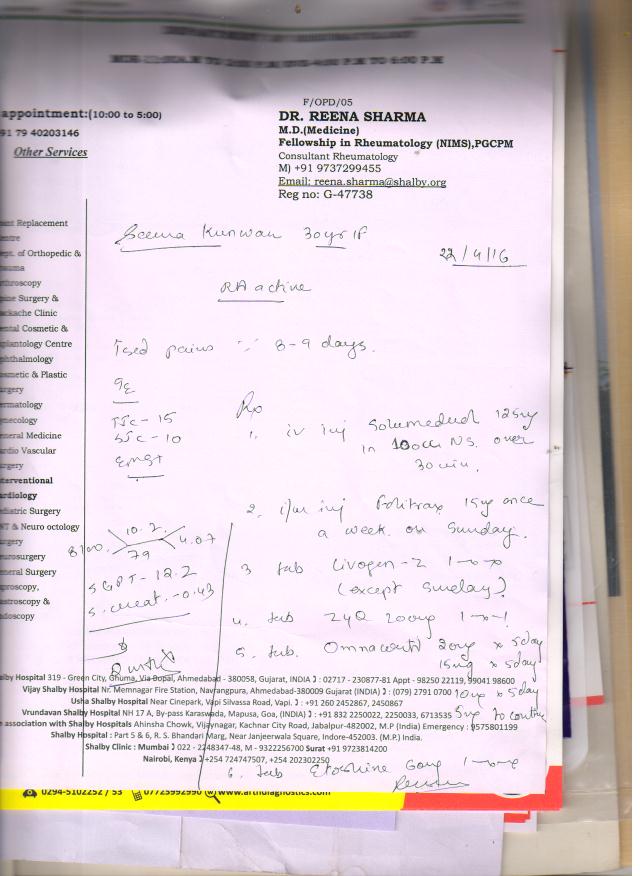 DEPARTMENT OF RHEUMATOLOGY
F/OPD/05
DR. REENA SHARMA
M.D.(Medicine)
Fellowship in Rheumatology (NIMS),PGCPM
Consultant Rheumatology
M) +91 9737299455
Email: reena.sharma@shalby.org
Reg no: G-47738
appointment:(10:00 to 5:00)
91 79 40203146
Other Services
int Replacement
entre
ept. of Orthopedic &
auma
throscopy
ine Surgery &
ackache Clinic
ental Cosmetic &
plantology Centre
phthalmology
osmetic & Plastic
rgery
ermatology
ynecology
eneral Medicine
ardio Vascular
urgery
terventional
ardiology
ediatric Surgery
NT & Neuro octology
rgery
eurosurgery
eneral Surgery
aproscopy,
astroscopy &
ndoscopy
Seema Kunwar 30yr/F
22/4/16
RA active
pains 8-9 days.
TJC - 15
SJC - 10
10.2
8100 4.07
79
SGPT - 12.2
S. creat. - 0.43
Rx
1. iv inj Solumedrol 125mg
in 100cc N.S. over
30 min.
2. i/m inj Folitrax 15mg once
a week on Sunday.
3 tab Livogen-Z 1-x-x
(except Sunday)
4. tab ZyQ 200mg 1-x-1
5. tab. Omnacortil 20mg x 5day
15mg x 5day
10mg x 5day
5mg to continue
6. tab Etoshine 60mg 1-x-x
alby Hospital 319 - Green City, Ghuma, Via Bopal, Ahmedabad - 380058, Gujarat, INDIA : 02717 - 230877-81 Appt - 98250 22119, 99041 98600
Vijay Shalby Hospital Nr. Memnagar Fire Station, Navrangpura, Ahmedabad-380009 Gujarat (INDIA) : (079) 2791 0700
Usha Shalby Hospital Near Cinepark, Vapi Silvassa Road, Vapi. : +91 260 2452867, 2450867
Vrundavan Shalby Hospital NH 17 A, By-pass Karaswada, Mapusa, Goa, (INDIA) : +91 832 2250022, 2250033, 6713535
e association with Shalby Hospitals Ahinsha Chowk, Vijaynagar, Kachnar City Road, Jabalpur-482002, M.P (India) Emergency : 9575801199
Shalby Hospital : Part 5 & 6, R. S. Bhandari Marg, Near Janjeerwala Square, Indore-452003. (M.P.) India.
Shalby Clinic : Mumbai : 022 - 2248347-48, M - 9322256700 Surat +91 9723814200
Nairobi, Kenya +254 724747507, +254 202302250
0294-5102252 / 53 07725992990 www.arthdiagnostics.com